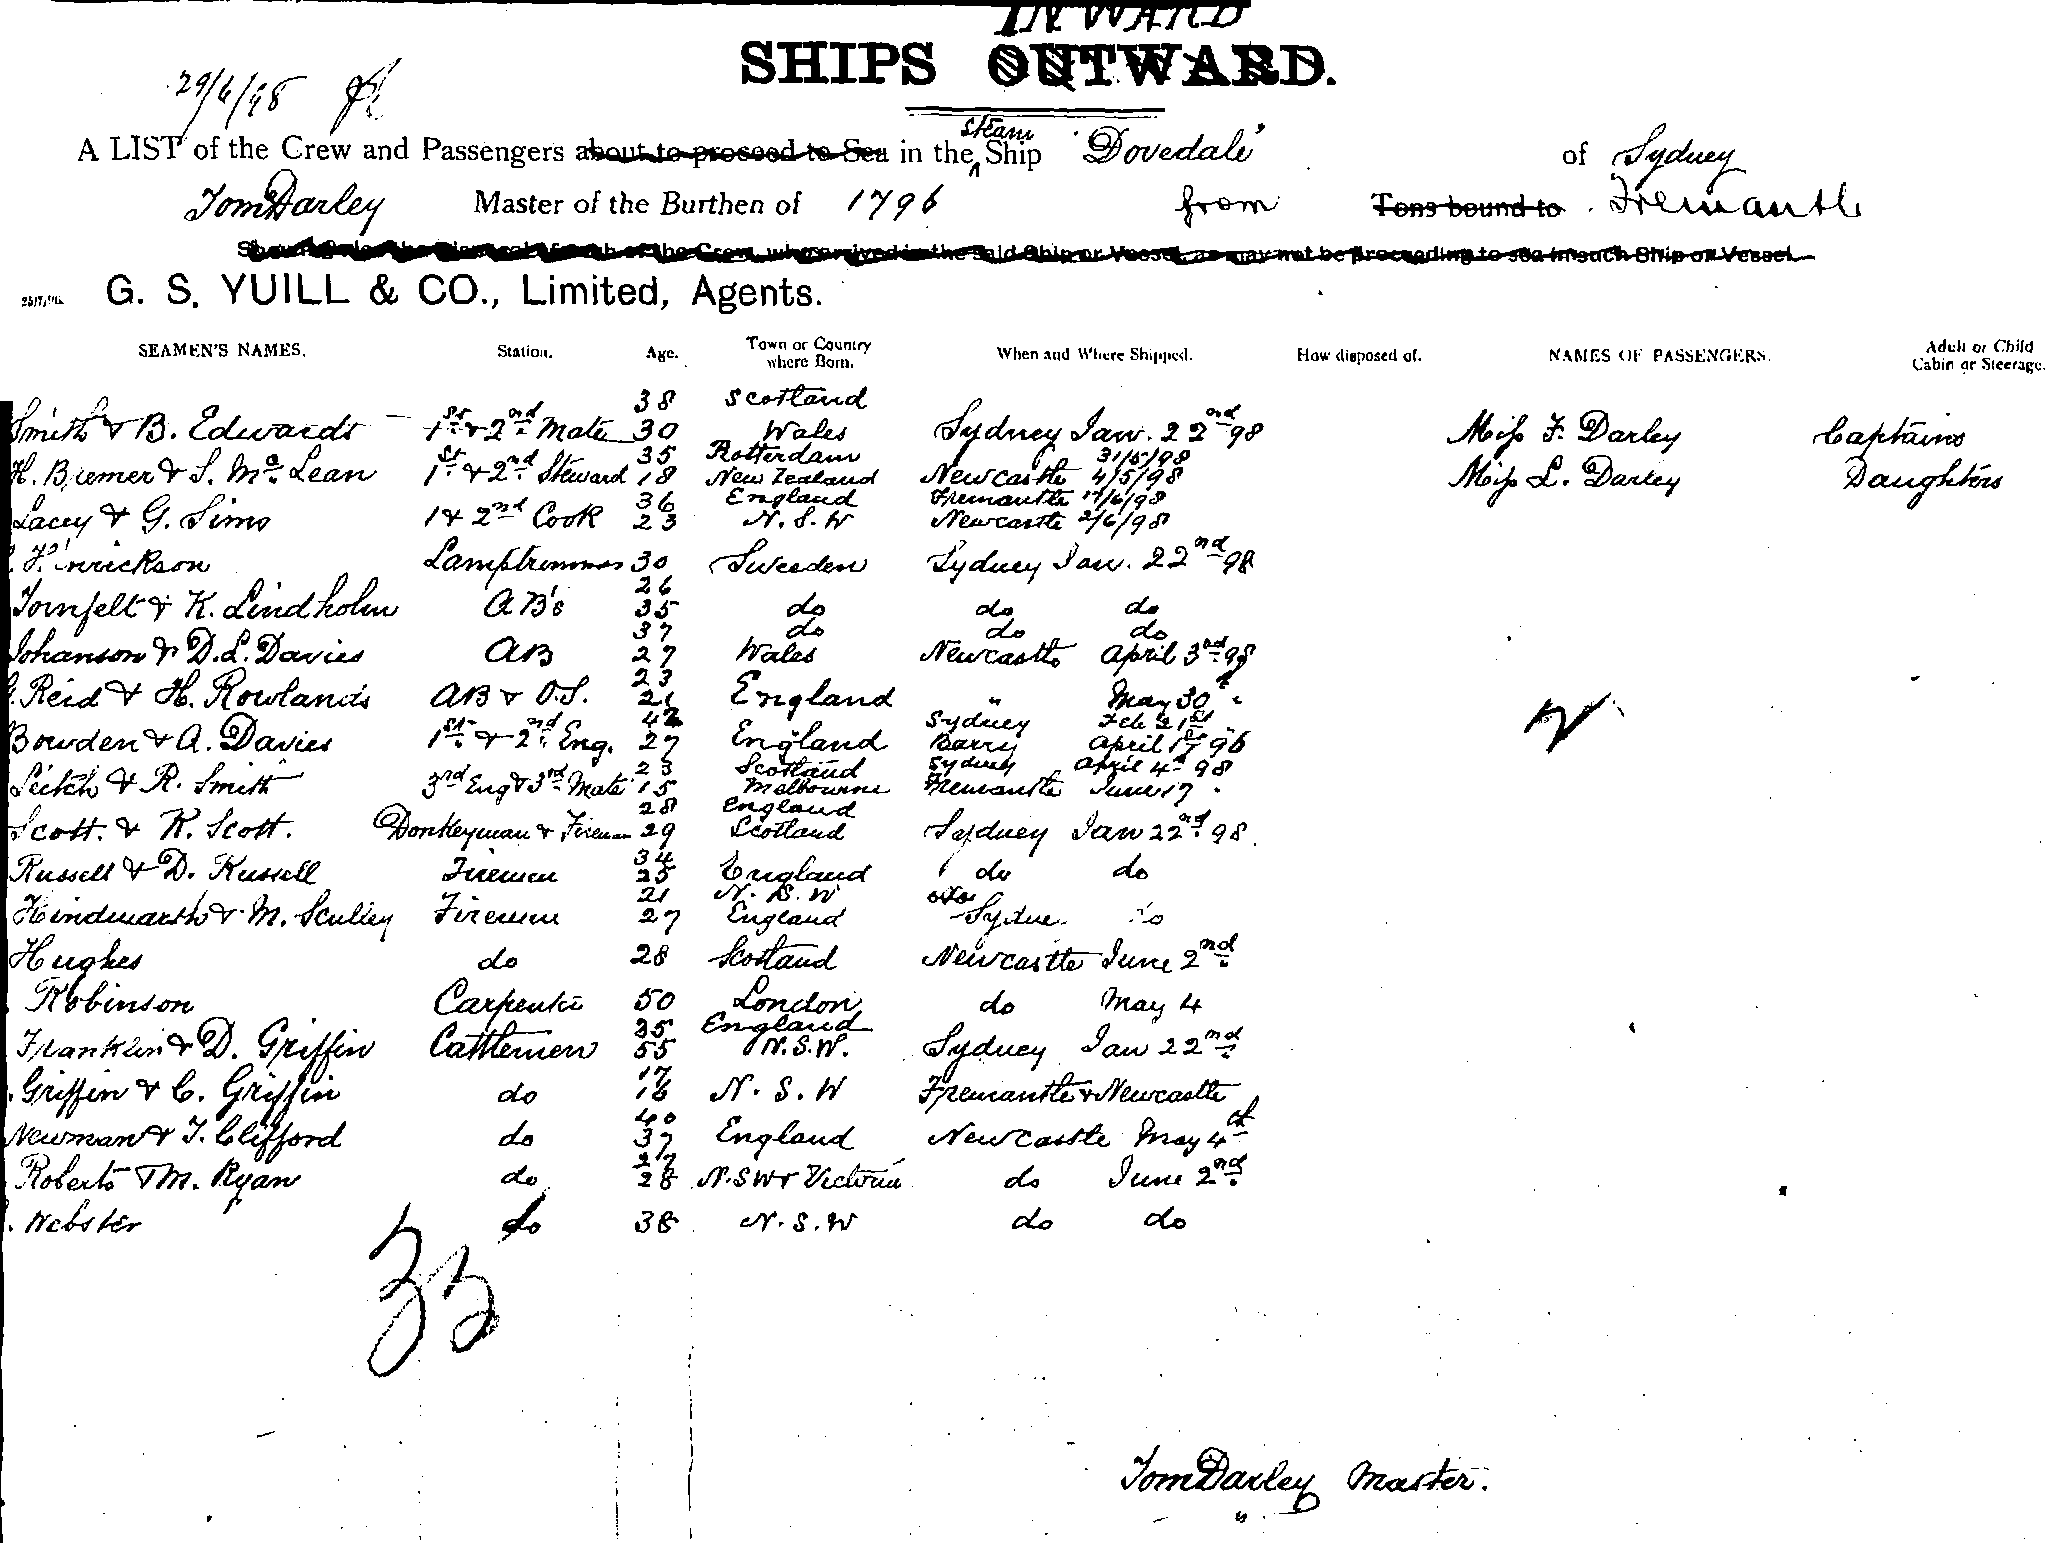 INWARD
SHIPS OUTWARD.
29/6/98
A LIST of the Crew and Passengers about to proceed to Sea in the steam Ship "Dovedale" of Sydney
Tom Darley Master of the Burthen of 1796 from Tons bound to Fremantle
G. S. YUILL & CO., Limited, Agents.
SEAMEN'S NAMES. Station. Age. Town or Country where Born. When and Where Shipped. How disposed of. NAMES OF PASSENGERS. Adult or Child Cabin or Steerage.
38 Scotland
Smith & B. Edwards 1st & 2nd Mate 30 Wales Sydney Jan. 22nd 98 Miss F. Darley Captains
35 Rotterdam 31/5/98
H. Bremer & S. McLean 1st & 2nd Steward 18 New Zealand Newcastle 4/5/98 Miss L. Darley Daughters
36 England Fremantle 17/6/98
Lacey & G. Sims 1 & 2nd Cook 23 N.S.W Newcastle 2/6/98
Lamptrimmer 30 Sweeden Sydney Jan. 22nd 98
26
Tornfelt & K. Lindholm AB's 35 do do do
37 do do do
Johanson & D.L. Davies AB 27 Wales Newcastle April 3rd 98
23
Reid & H. Rowlands AB & O.S. 21 England " May 30 "
42 Sydney Feb 21st
Bowden & A. Davies 1st & 2nd Eng. 27 England Barry April 17 96
23 Scotland Sydney April 4th 98
Leitch & R. Smith 3rd Eng & 3rd Mate 15 Melbourne Fremantle June 17 "
28 England
Scott. & K. Scott. Donkeyman & Fireman 29 Scotland Sydney Jan 22nd 98.
34
Russell & D. Russell Firemen 25 England do do
21 N.S.W
Hindmarsh & M. Sculley Firemen 27 England Sydne do
Hughes do 28 Scotland Newcastle June 2nd
Robinson Carpenter 50 London do May 4
35 England
Franklin & D. Griffin Cattlemen 55 N.S.W. Sydney Jan 22nd
17
Griffin & C. Griffin do 16 N.S.W Fremantle & Newcastle
40
Newman & T. Clifford do 37 England Newcastle May 4th
27
Roberts & M. Ryan do 28 N.S.W & Victoria do June 2nd
Webster do 38 N.S.W do do
33
Tom Darley Master.